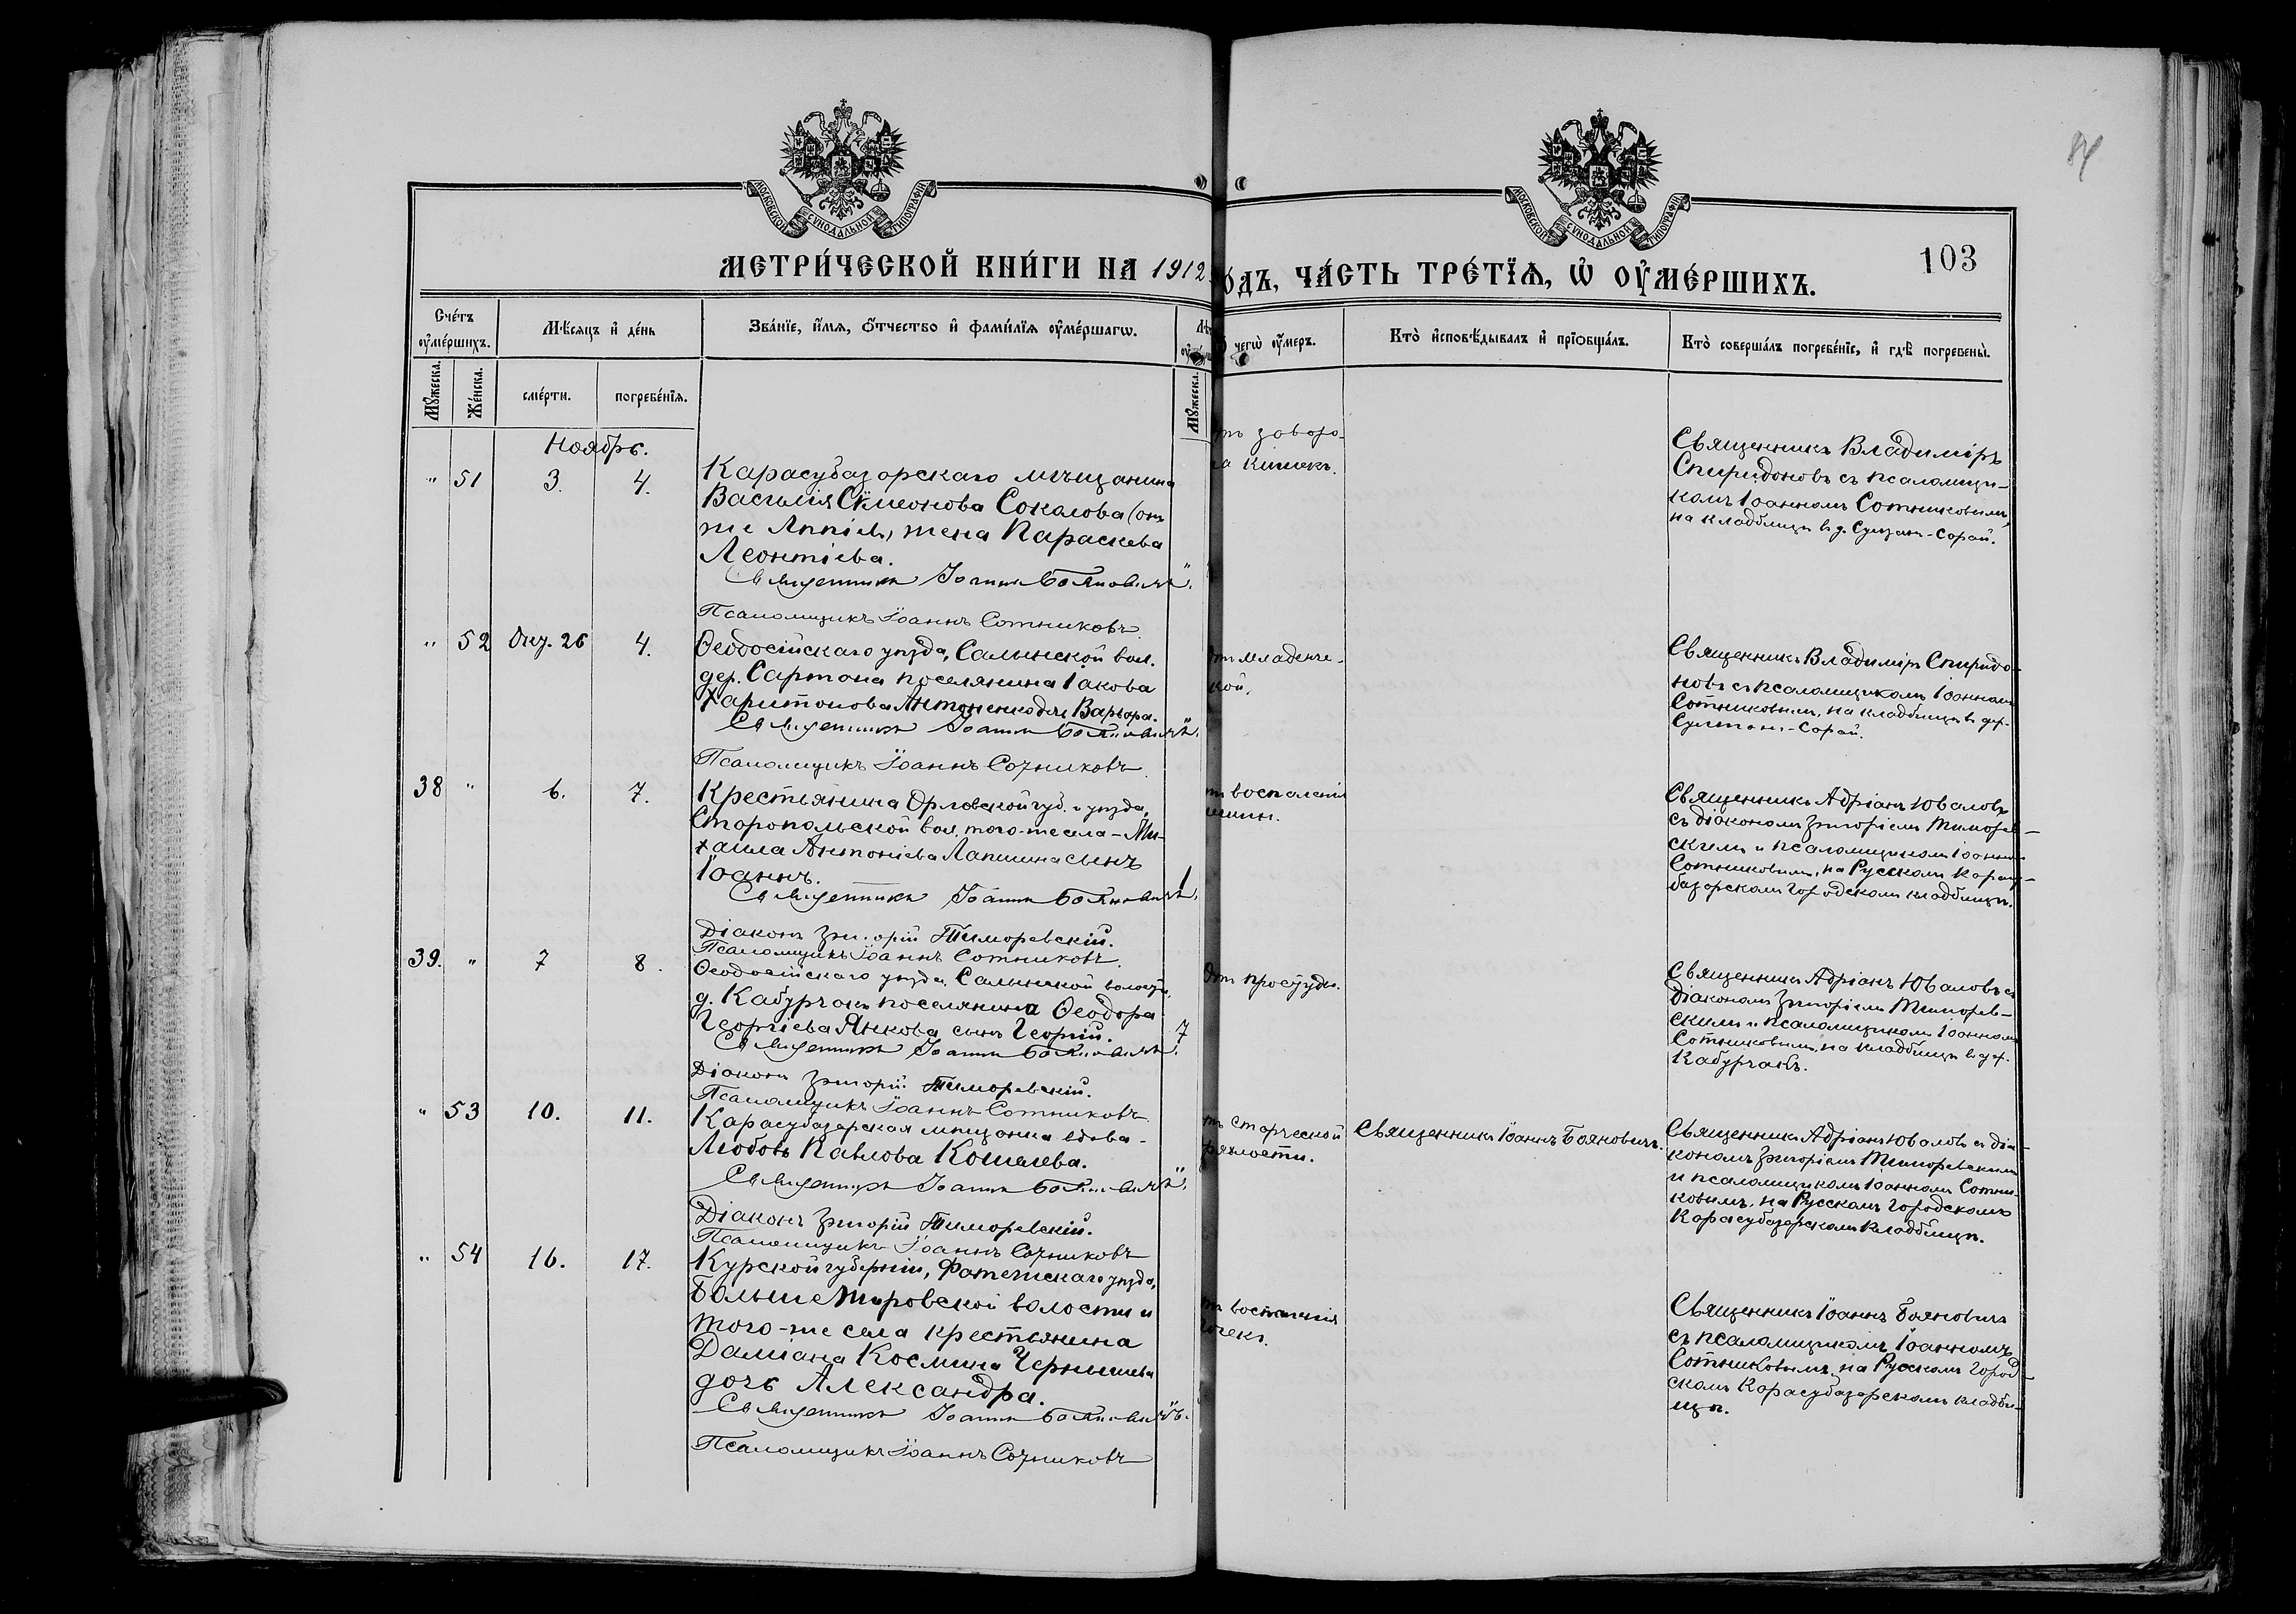 84
МОСКОВСКОЙ СѴНОДАЛЬНОЙ ТИПОГРАФІИ
МОСКОВСКОЙ СѴНОДАЛЬНОЙ ТИПОГРАФІИ
103
МЕТРИ́ЧЕСКОЙ КНИ́ГИ НА 1912
ОДЪ, ЧА́СТЬ ТРЕ́ТЇѦ, Ѡ҆ ОУ҆МЕ́РШИХЪ.
Сче́тъ оу҆ме́ршихъ.
Мѣ́сяцъ и҆ де́нь
Зва́нїе, и҆́мѧ, ѻ҆́тчество и҆ фами́лїѧ оу҆ме́ршагѡ.
чегѡ̀ оу҆́меръ.
Кто̀ и҆сповѣ́дывалъ и҆ прїѻбща́лъ.
Кто̀ соверша́лъ погребе́нїе, и҆ гдѣ̀ погребены̀.
Мꙋ́жеска.
Же́нска.
сме́рти.
погребе́нїѧ.
Мꙋ́жеска.
Ноябрь.
" 51 3. 4.
Карасубазарскаго мѣщанина
Василія Сѵмеонова Соколова (онъ
же Аппіевъ) жена Параскева
Леонтіева.
Священникъ Іоаннъ Бояновичъ.
Псаломщикъ Іоаннъ Сотниковъ.
отъ заворо-
та кишекъ.
Священникъ Владиміръ
Спиридоновъ съ псаломщи-
комъ Іоанномъ Сотниковымъ,
на кладбищѣ въ д. Султанъ-Сарай.
" 52 Окт. 26 4.
Ѳеодосійскаго уѣзда, Салынской вол.
дер. Сартана поселянина Іакова
Харитонова Антоненко дочь Варвара.
Священникъ Іоаннъ Бояновичъ.
Псаломщикъ Іоаннъ Сотниковъ.
Отъ младенче-
кой.
Священникъ Владиміръ Спиридо-
новъ съ псаломщикомъ Іоанномъ
Сотниковымъ, на кладбищѣ въ дер.
Султанъ-Сарай.
38 " 6. 7.
Крестьянина Орловской губ. и уѣзда,
Старопольской вол. того-же села - Ми-
хаила Антоніева Лапшина сынъ
Іоаннъ.
1
Священникъ Іоаннъ Бояновичъ.
Діаконъ Григорій Тиморевскій.
Псаломщикъ Іоаннъ Сотниковъ.
отъ воспаленія
Священникъ Адріанъ Юваловъ
съ діакономъ Григоріемъ Тиморев-
скимъ и псаломщикомъ Іоанномъ
Сотниковымъ, на Русскомъ Карасу-
базарскомъ городскомъ кладбищѣ.
39. " 7 8.
Ѳеодосійскаго уѣзда, Салынской волости,
д. Кабурчакъ поселянина Ѳеодора
Георгіева Янкова сынъ Георгій.
7
Священникъ Іоаннъ Бояновичъ.
Діаконъ Григорій Тиморевскій.
Псаломщикъ Іоаннъ Сотниковъ
Отъ простуды.
Священникъ Адріанъ Юваловъ съ
діакономъ Григоріемъ Тиморев-
скимъ и псаломщикомъ Іоанномъ
Сотниковымъ, на кладбищѣ въ дер.
Кабурчакъ.
" 53 10. 11.
Карасубазарская мѣщанка вдова -
Любовь Павлова Кошелева.
Священникъ Іоаннъ Бояновичъ.
Діаконъ Григорій Тиморевскій.
Псаломщикъ Іоаннъ Сотниковъ
отъ старческой
дряхлости.
Священникъ Іоаннъ Бояновичъ.
Священникъ Адріанъ Юваловъ съ діа-
кономъ Григоріемъ Тиморевскимъ
и псаломщикомъ Іоанномъ Сотни-
ковымъ, на Русскомъ городскомъ
Карасубазарскомъ кладбищѣ.
" 54 16. 17.
Курской губерніи, Фатежскаго уѣзда,
Больше Жировской волости и
того-же села крестьянина
Даміана Космина Чернышева
дочь Александра.
Священникъ Іоаннъ Бояновичъ.
Псаломщикъ Іоаннъ Сотниковъ
отъ воспаленія
почекъ.
Священникъ Іоаннъ Бояновичъ
съ псаломщикомъ Іоанномъ
Сотниковымъ, на Русскомъ город-
скомъ Карасубазарскомъ кладби-
щѣ.